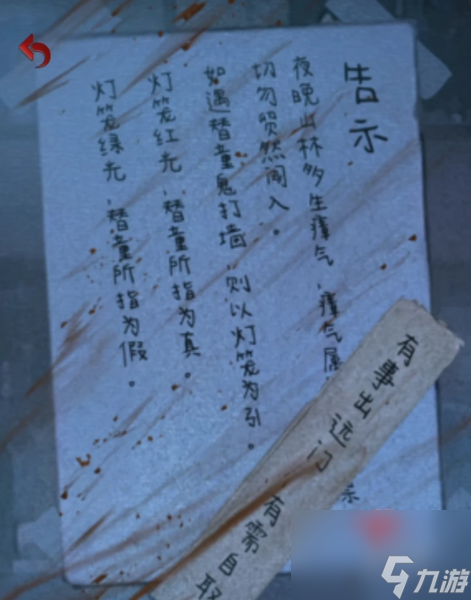 告示
夜晚山林多生瘴气,瘴气属
切勿贸然闯入。
如遇替童鬼打墙,则以灯笼为引。
灯笼红光,替童所指为真。
灯笼绿光,替童所指为假。
有事出远门
有需自取
九游